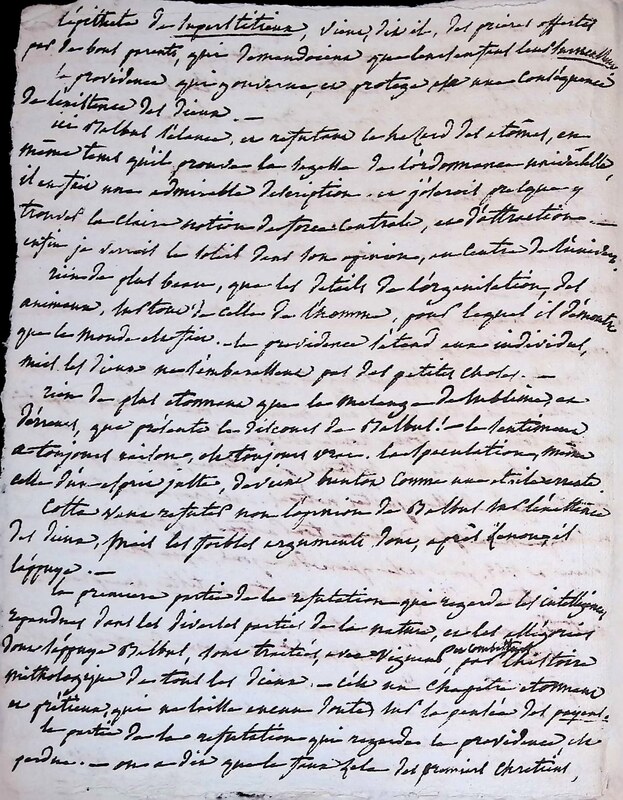 l'épithete de superstitieux, vient, dit il, des prieres offertes
par de bons parents, qui demandoient que leurs enfans leur survecussent,
la providence qui gouverne, et protege est une conséquence
de l'existence des dieux. —
ici Balbus s'élance, et refutant le hazard des atômes, en
même tems qu'il prouve la sagesse de l'ordonnance universelle,
il en fait une admirable description. et j'oserois presque y
trouver la claire notion de force centrale, et d'attraction. —
enfin je verrois le soleil dans son opinion, au centre de l'univers.
rien de plus beau, que les details de l'organisation, des
animaux, surtout de celle de l'homme, pour lequel il démontre
que le monde est fait. — la providence s'étend aux individus,
mais les dieux ne s'embarassent pas des petites choses. —
rien de plus etonnant que le melange de sublime, et
d'erreurs, que présente le discours de Balbus! — le sentiment
a toujours raison, est toujours vrai. la speculation, même
celle d'un esprit juste, devient comme une etoile errante
Cotta veut refuter non l'opinion de Balbus sur l'existence
des dieux, mais les foibles arguments dont, après Zenon, il
l'appuye. —
la premiere partie de la refutation qui regarde les intelligences
repandues dans les diverses parties de la nature, et les allégories
dont s'appuye Balbus, sont traitées, avec vigueur, et combattues par l'histoire
mithologique de tous les dieux. — c'est un chapitre etonnant
et prétieux, qui ne laisse aucun doute, sur la pensée des payens. —
la partie de la refutation qui regarde la providence, est
perdue. — on a dit que le faux zele des premiers chretiens,